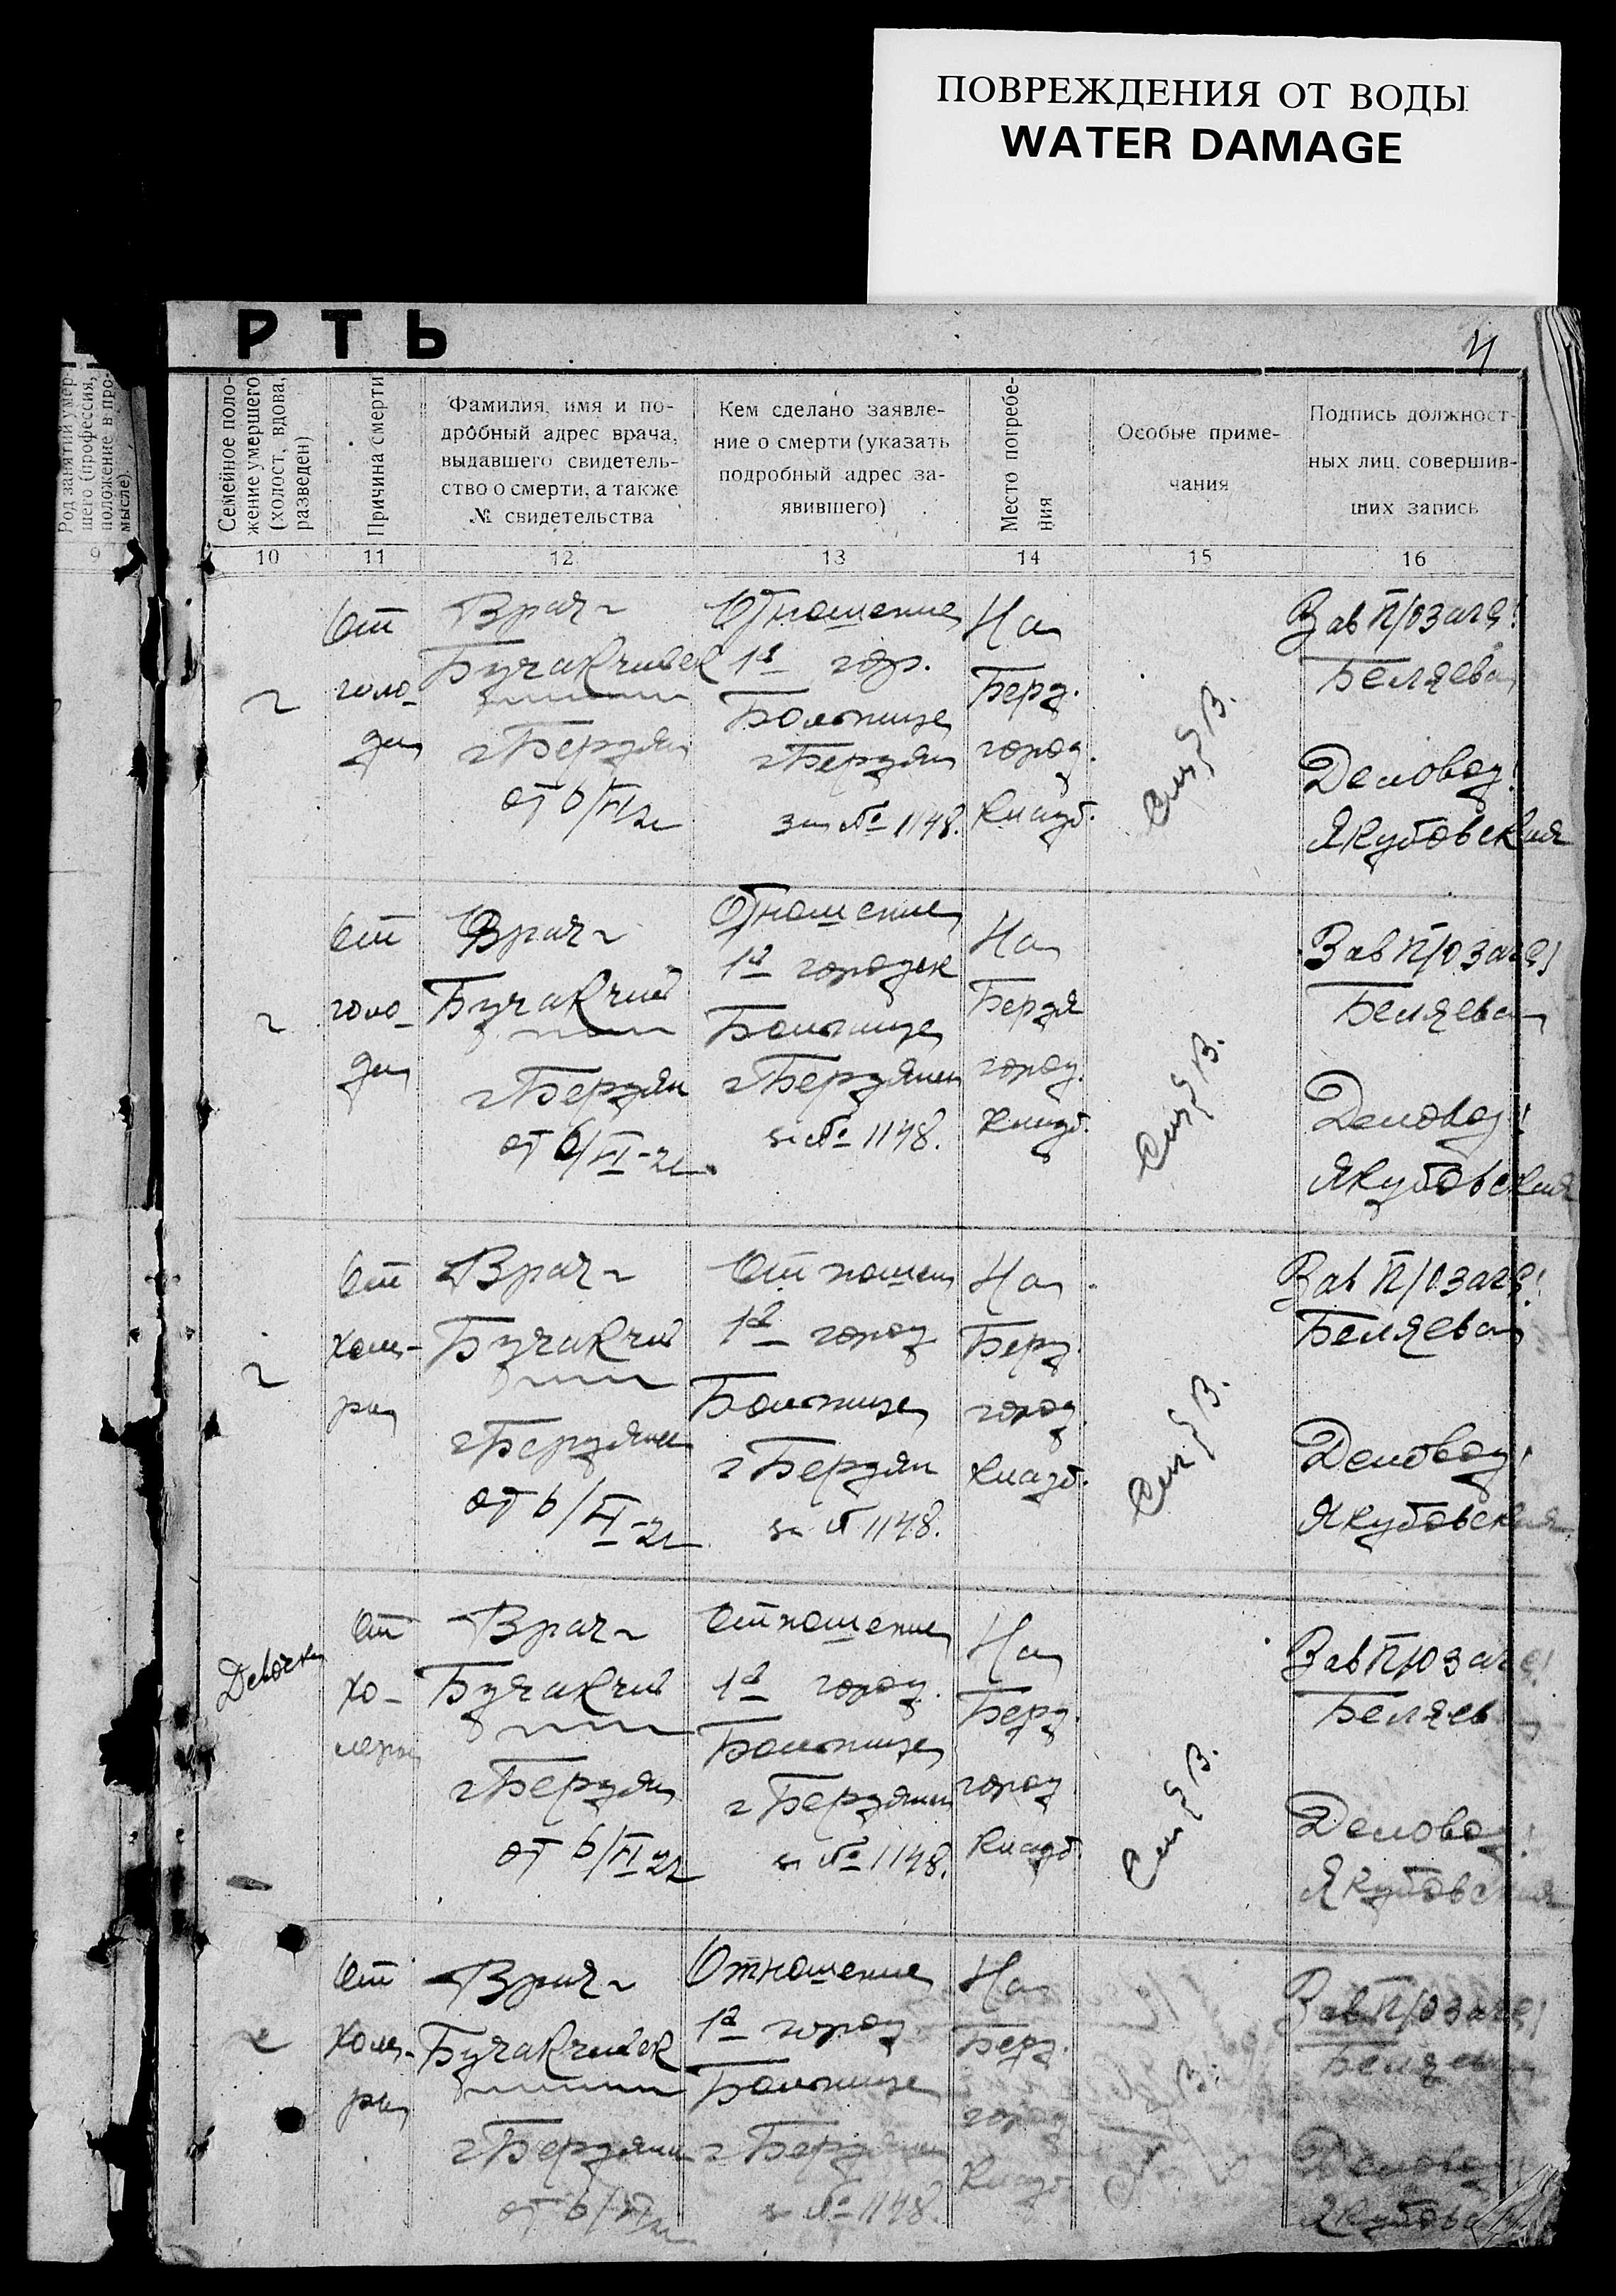 ПОВРЕЖДЕНИЯ ОТ ВОДЫ
WATER DAMAGE
РТЬ
4
Род занятий умер-
шего (профессия,
положение в про-
мысле).
9
Семейное поло-
жение умершего
(холост, вдова,
разведен)
10
Причина смерти
11
Фамилия, имя и по-
дробный адрес врача,
выдавшего свидетель-
ство о смерти, а также
№ свидетельства
12
Кем сделано заявле-
ние о смерти (указать
подробный адрес за-
явившего)
13
Место погребе-
ния
14
Особые приме-
чания
15
Подпись должност-
ных лиц, совершив-
ших запись
16
От
голо-
да
Врач
г Бердян
от 6/VI
Отношение
1й гор.
Больнице
г Бердян
за № 1148.
На
Берд.
город.
кладб.
Зав П/озагс!
Беляева
Деловод!
Якубовская
От
голо-
да
Врач
г Бердян
от 6/VI-
Отношение
1й
Больнице
г Бердян
№ 1148.
На
Бердя
город.
кладб.
Зав П/озагс!
Беляева
Деловод!
Якубовская
От
холе-
ра
Врач
г Бердян
от 6/VI-
Отношен
1й город
Больнице
г Бердян
№ 1148.
На
Берд.
город.
кладб.
Зав П/озагс!
Беляева
Деловод!
Якубовская
Девочка
От
хо-
лера
Врач
г Бердян
от 6/VI
Отношение
1й город.
Больнице
г Бердян
№ 1148.
На
Берд.
город
кладб.
Зав П/озагс!
Беляев
Деловод!
Якубовская
От
холе-
ра
Врач
г Бердян
от 6/VI
Отношение
1й город
Больнице
г Бердян
№ 1148.
На
Берд.
город
кладб
Зав П/озагс!
Беляева
Деловод
Якубов